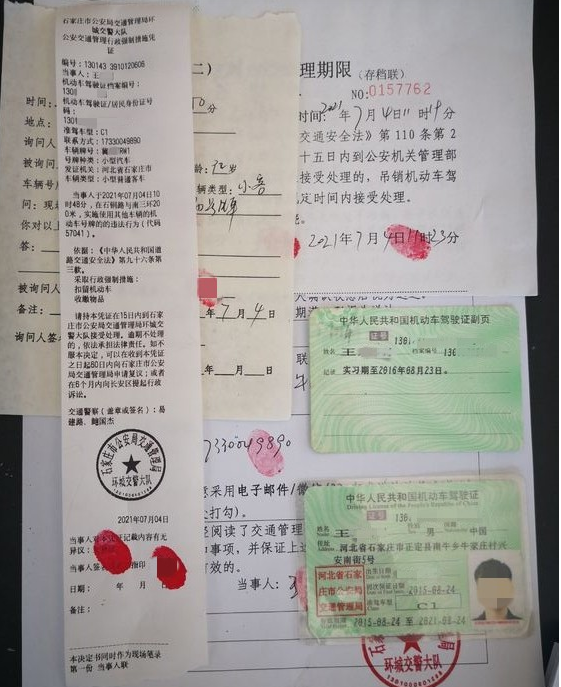 石家庄市公安局交通管理局环
城交警大队
公安交通管理行政强制措施凭
证
编号：130143 3910120608
当事人：王
机动车驾驶证档案编号：
130
机动车驾驶证/居民身份证号
码：
1301
准驾车型：C1
联系方式：17330049890
车辆牌号：冀 RW1
号牌种类：小型汽车
发证机关：河北省石家庄市
车辆类型：小型普通客车
当事人于2021年07月04日10
时48分，在石铜路与南三环20
0米，实施使用其他车辆的机
动车号牌的违法行为（代码
57041）。
依据：《中华人民共和国道
路交通安全法》第九十六条第
三款。
采取行政强制措施：
扣留机动车
收缴物品
请持本凭证在15日内到石家
庄市公安局交通管理局环城交
警大队接受处理。逾期不处理
的，依法承担法律责任。如不
服本决定，可以在收到本凭证
之日起60日内向石家庄市公安
局交通管理局申请复议；或者
在6个月内向长安区提起行政
诉讼。
交通警察（盖章或签名）：易
德路、鲍国杰
石家庄市公安局交通管理局
环城交警大队
2021年07月04日
当事人对本凭证记载内容有无
异议：
当事人签名 指印
日期： 年 月 日
备注：
本决定书同时作为现场笔录
第一份 当事人联
二）
时间：
0分
地点：
询问人
被询问
车辆号
问：现
你对以
答：
龄： 岁
辆类型：小客
年 7 月 4 日
被询问
备注：
询问人签
年 月 日
理期限（存档联）
NO:0157762
时间：2021年7月4日11时19分
交通安全法》第110条第2
十五日内到公安机关管理部
接受处理的，吊销机动车驾
定时间内接受处理。
2021年7月4日11时23分
联
7330049890
意采用电子邮件/微信
处打勾）。
经阅读了交通管理
和事项，并保证上述
有效的。
当事人：
环城交警大队
中华人民共和国机动车驾驶证副页
证号 1301
姓名 王 档案编号 130
记录 实习期至2016年08月23日。
中华人民共和国机动车驾驶证
Driving License of the People's Republic of China
证号 130
姓名 王 男 中国
住址 河北省石家庄市正定县南牛乡牛家庄村兴
安南街5号
河北省石家
庄市公安局
交通管理局
出生日期
初次领证日期 2015-08-24
准驾车型 C1
2015-08-24 至 2021-08-24